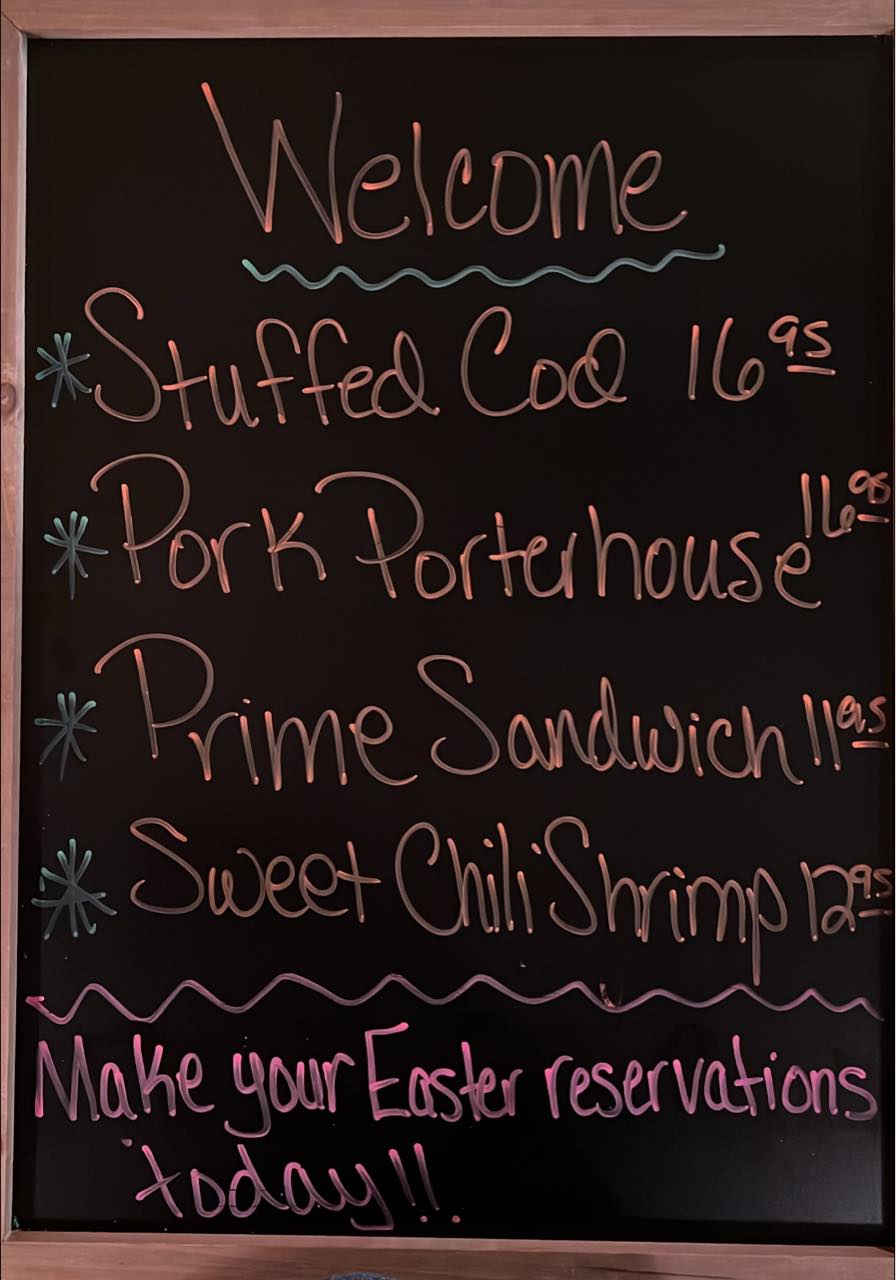 Welcome
* Stuffed Cod 16 95
* Pork Porterhouse 16 95
* Prime Sandwich 11 95
* Sweet Chili Shrimp 12 95
Make your Easter reservations
today!!